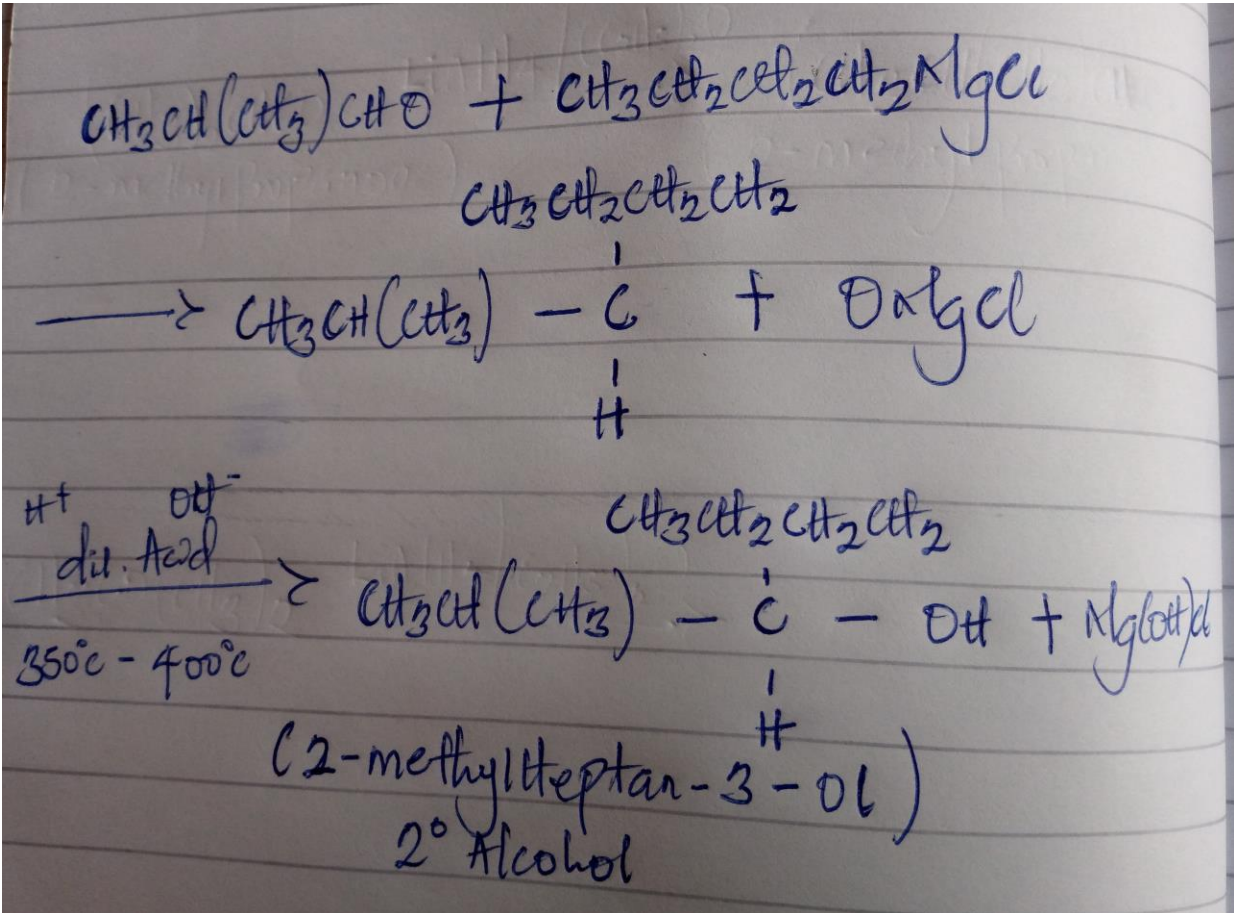 CH3CH(CH3)CHO + CH3CH2CH2CH2MgCl
CH3CH2CH2CH2
|
→ CH3CH(CH3) — C + OMgCl
|
H
H+ OH-
dil. Acid
350°c - 400°c
CH3CH2CH2CH2
|
> CH3CH(CH3) — C — OH + Mg(OH)Cl
|
H
(2-methylHeptan-3-Ol)
2° Alcohol